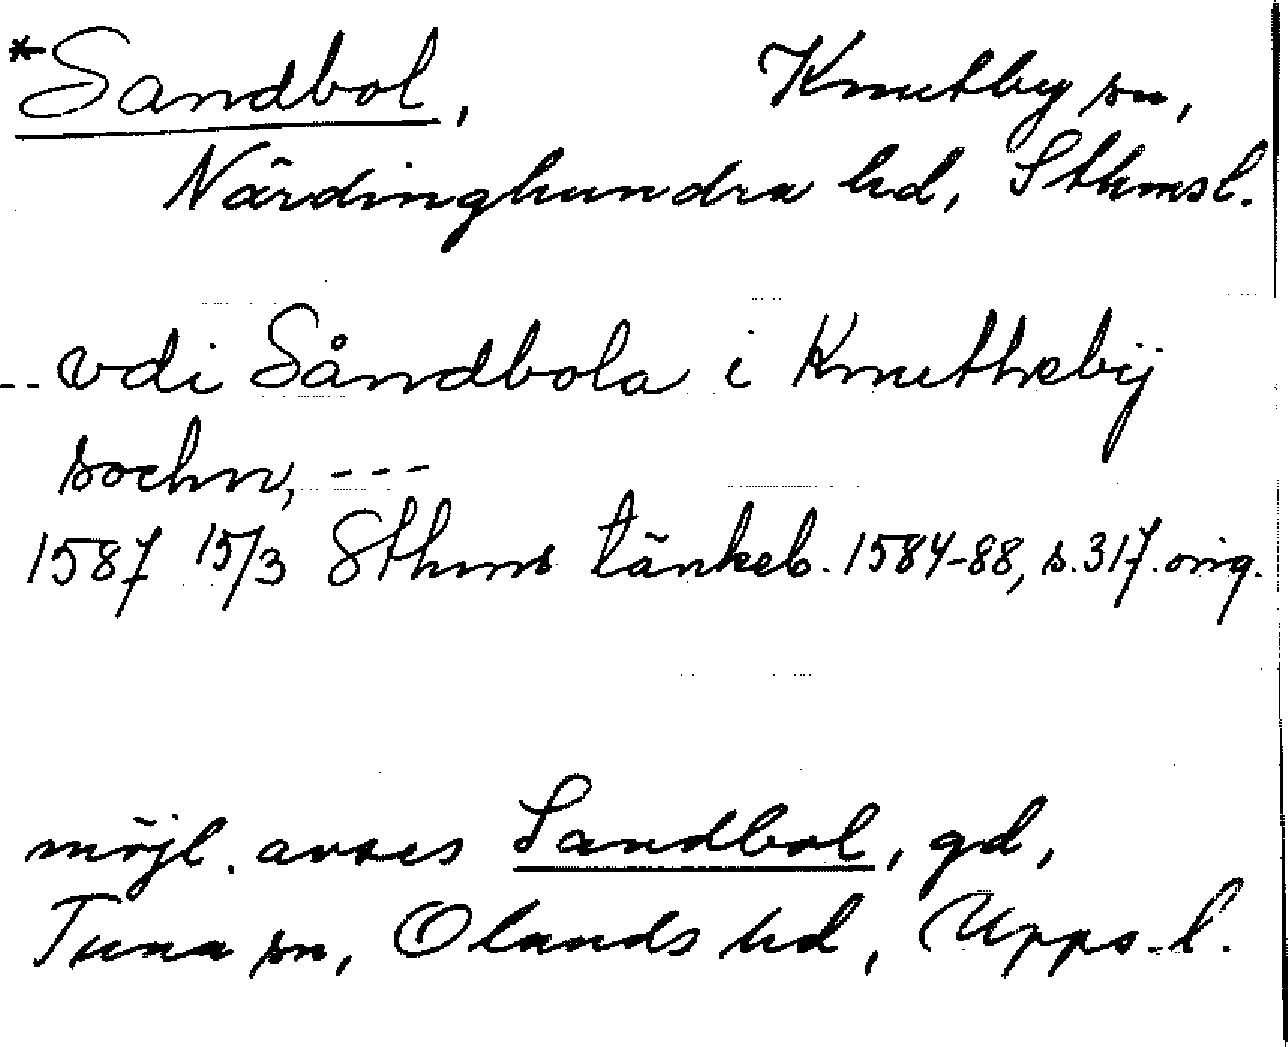 *Sandbol, Knutby sn,
Närdinghundra hd, Sthmsl.
-- vdi Såndbola i Knuthebij
sochn, ---
1587 15/3 Sthms tänkeb. 1584-88, s. 317. orig.
möjl. avses Sandbol, gd,
Tuna sn, Olands hd, Upps. l.